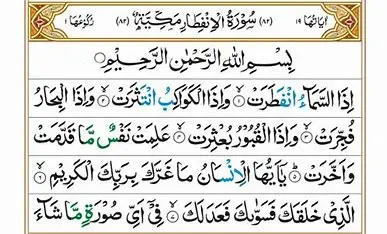 اٰيَاتُهَا ١٩ (٨٢) سُوْرَةُ الْاِنْفِطَارِ مَكِّيَّةٌ (٨٢) رُكُوْعُهَا ١
بِسْمِ اللّٰهِ الرَّحْمٰنِ الرَّحِيْمِ
اِذَا السَّمَآءُ انْفَطَرَتْ ۙ ١ وَاِذَا الْكَوَاكِبُ انْتَثَرَتْ ۙ ٢ وَاِذَا الْبِحَارُ
فُجِّرَتْ ۙ ٣ وَاِذَا الْقُبُوْرُ بُعْثِرَتْ ۙ ٤ عَلِمَتْ نَفْسٌ مَّا قَدَّمَتْ
وَاَخَّرَتْ ؕ ٥ يٰۤاَيُّهَا الْاِنْسَانُ مَا غَرَّكَ بِرَبِّكَ الْكَرِيْمِ ۙ ٦
الَّذِيْ خَلَقَكَ فَسَوّٰىكَ فَعَدَلَكَ ۙ ٧ فِيْۤ اَيِّ صُوْرَةٍ مَّا شَآءَ